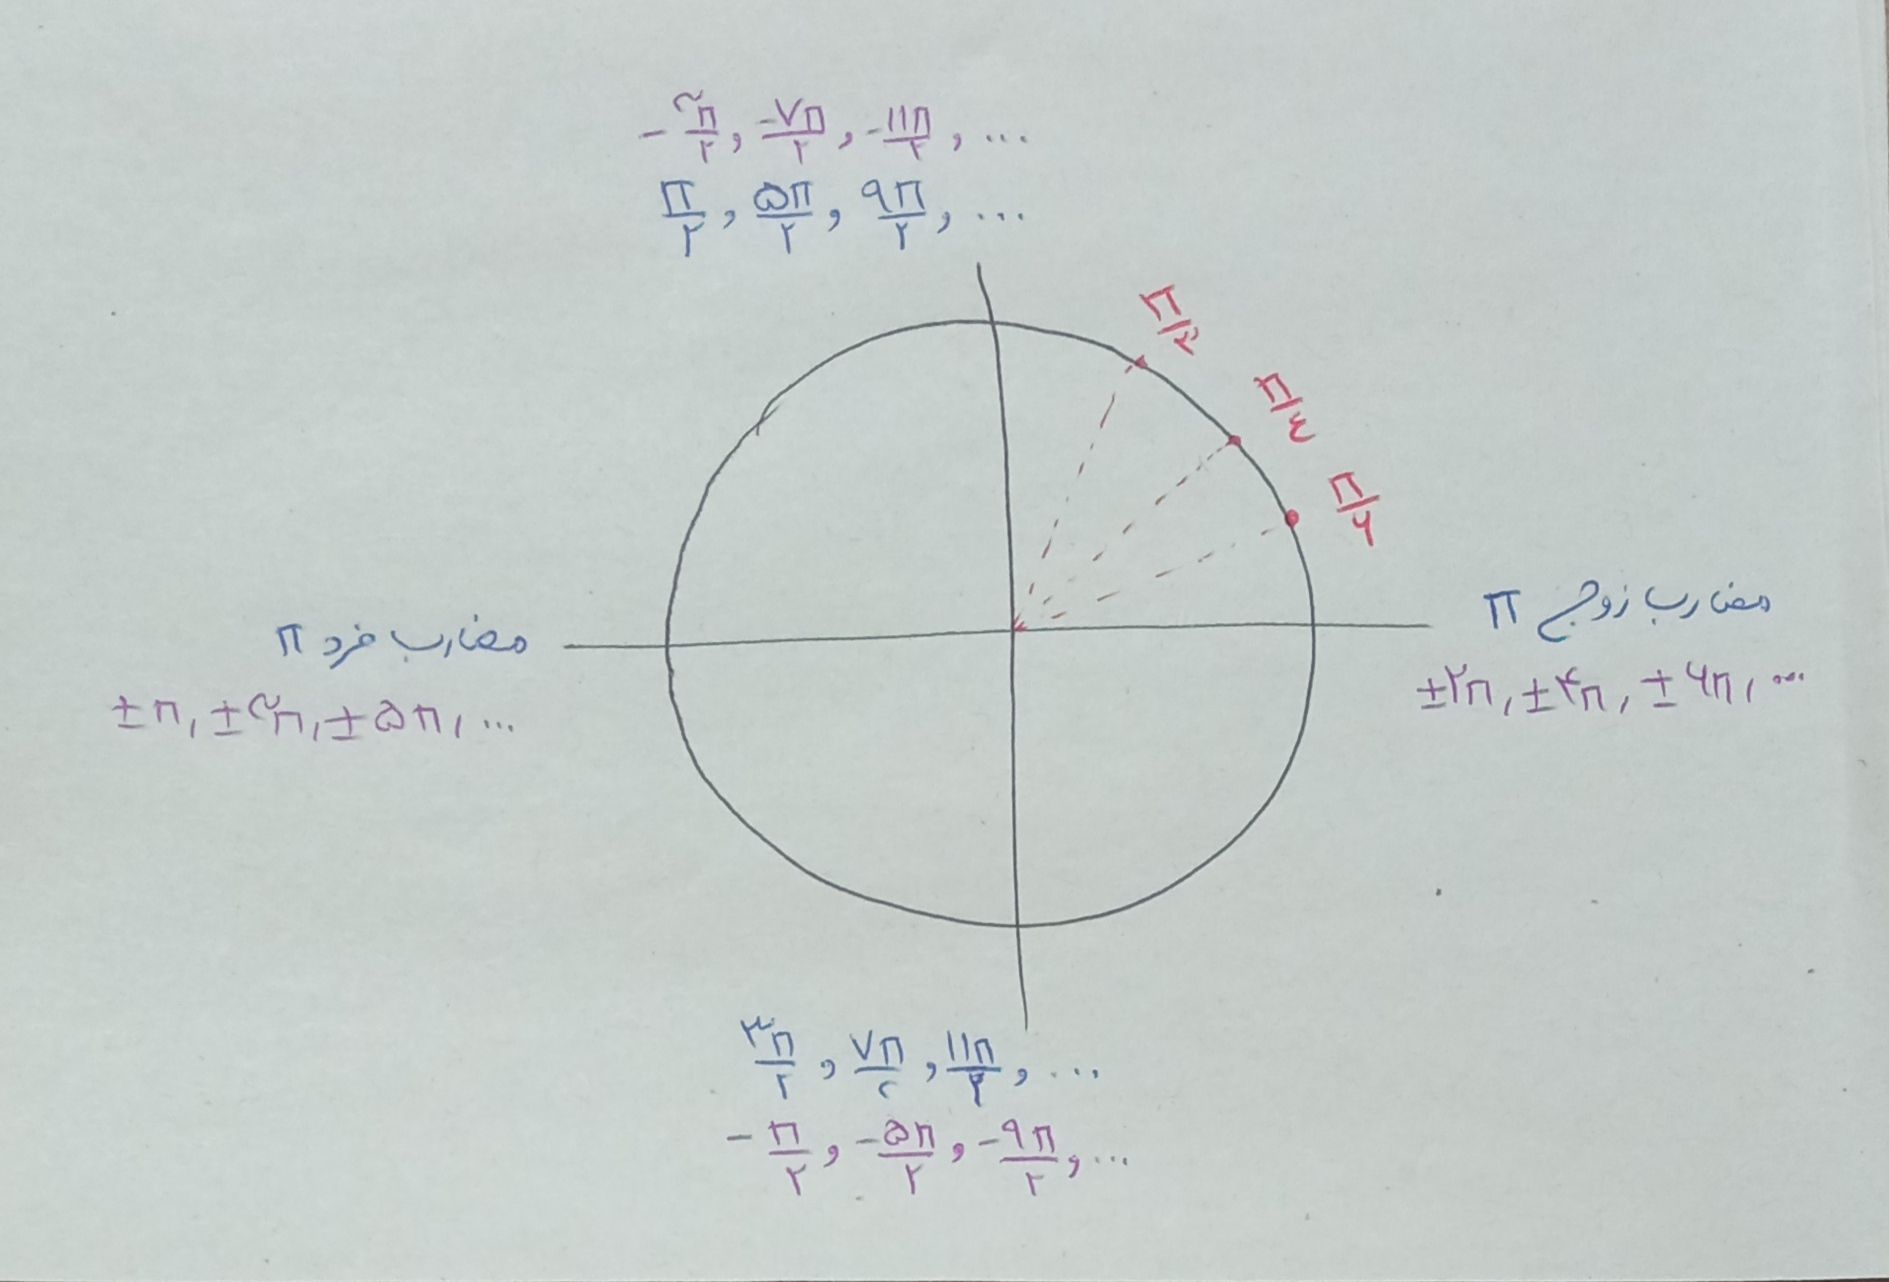 -۳π/۲, -۷π/۲, -۱۱π/۲, ...
π/۲, ۵π/۲, ۹π/۲, ...
π/۳
π/٤
π/۶
مضارب زوج π
±۲π, ±۴π, ±۶π, ...
مضارب فرد π
±π, ±۳π, ±۵π, ...
۳π/۲, ۷π/۲, ۱۱π/۲, ...
-π/۲, -۵π/۲, -۹π/۲, ...